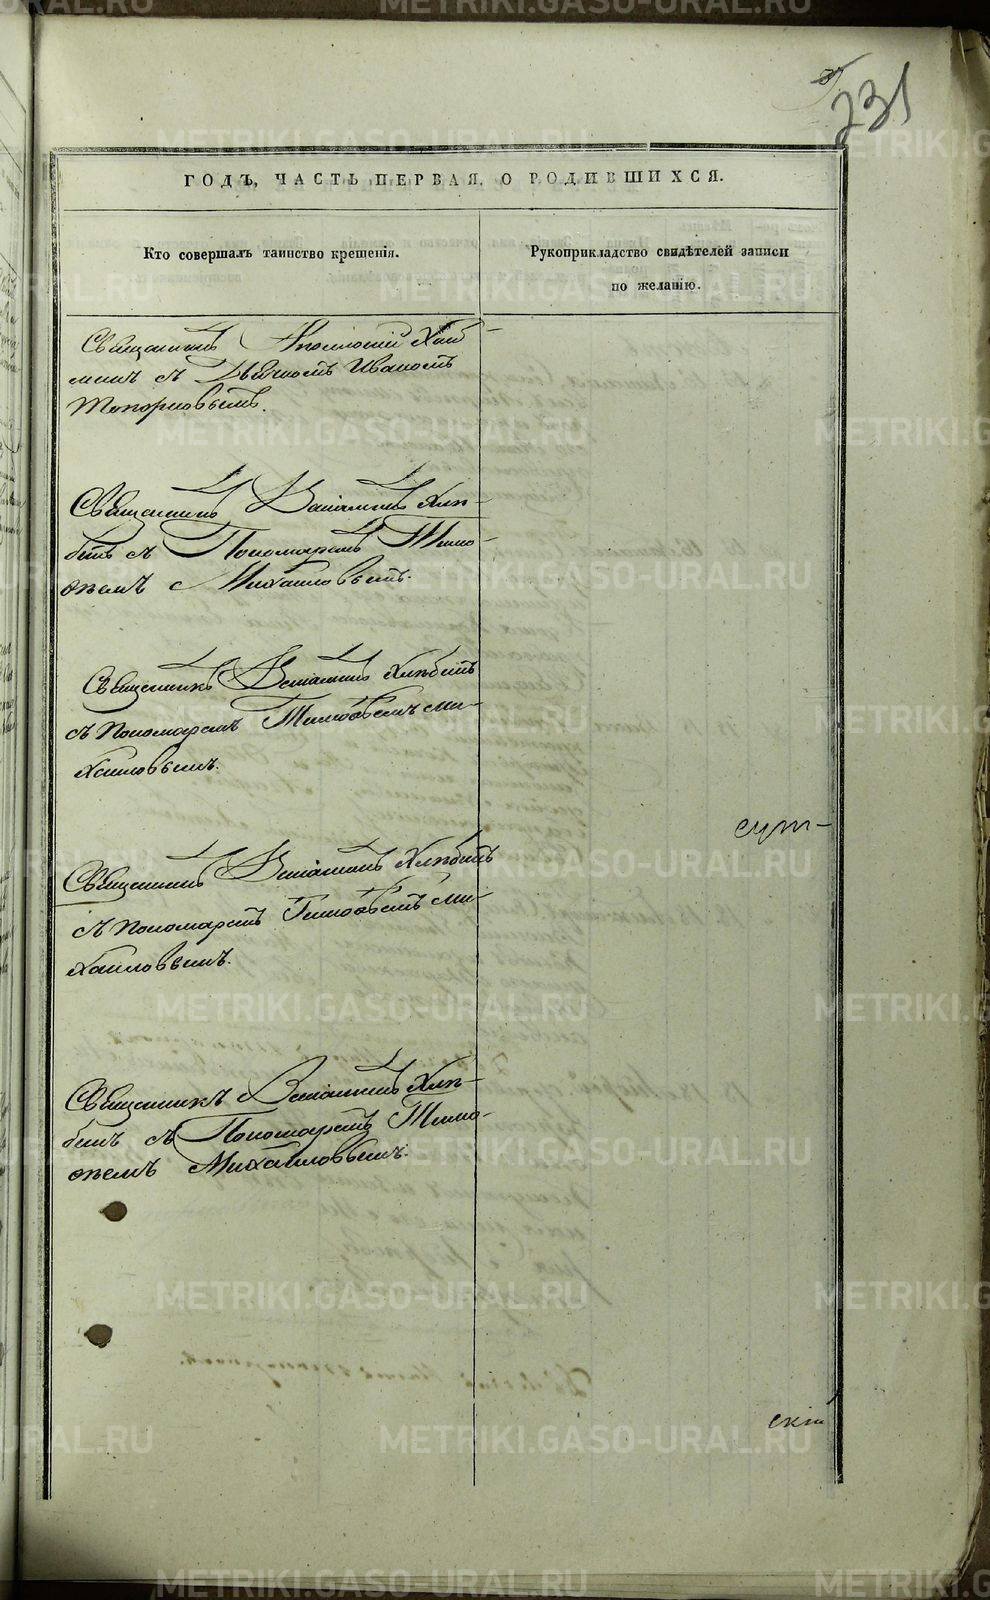 231
ГОДЪ, ЧАСТЬ ПЕРВАЯ, О РОДИВШИХСЯ.
Кто совершалъ таинство крещенія.
Рукоприкладство свидѣтелей записи
по желанію.
Священникъ
съ Дьячкомъ Иваномъ
Топорковымъ.
Священникъ Веніаминъ Хлѣ-
бинъ съ Пономаремъ Тимо-
ѳеемъ Михайловымъ.
Священникъ Веніаминъ Хлѣбинъ
съ Пономаремъ Тимоѳеемъ Ми-
хайловымъ.
сут-
Священникъ Веніаминъ Хлѣбинъ
съ Пономаремъ Тимоѳеемъ Ми-
хайловымъ.
Священникъ Веніаминъ Хлѣ-
бинъ съ Пономаремъ Тимо-
ѳеемъ Михайловымъ.
скій
METRIKI.GASO-URAL.RU